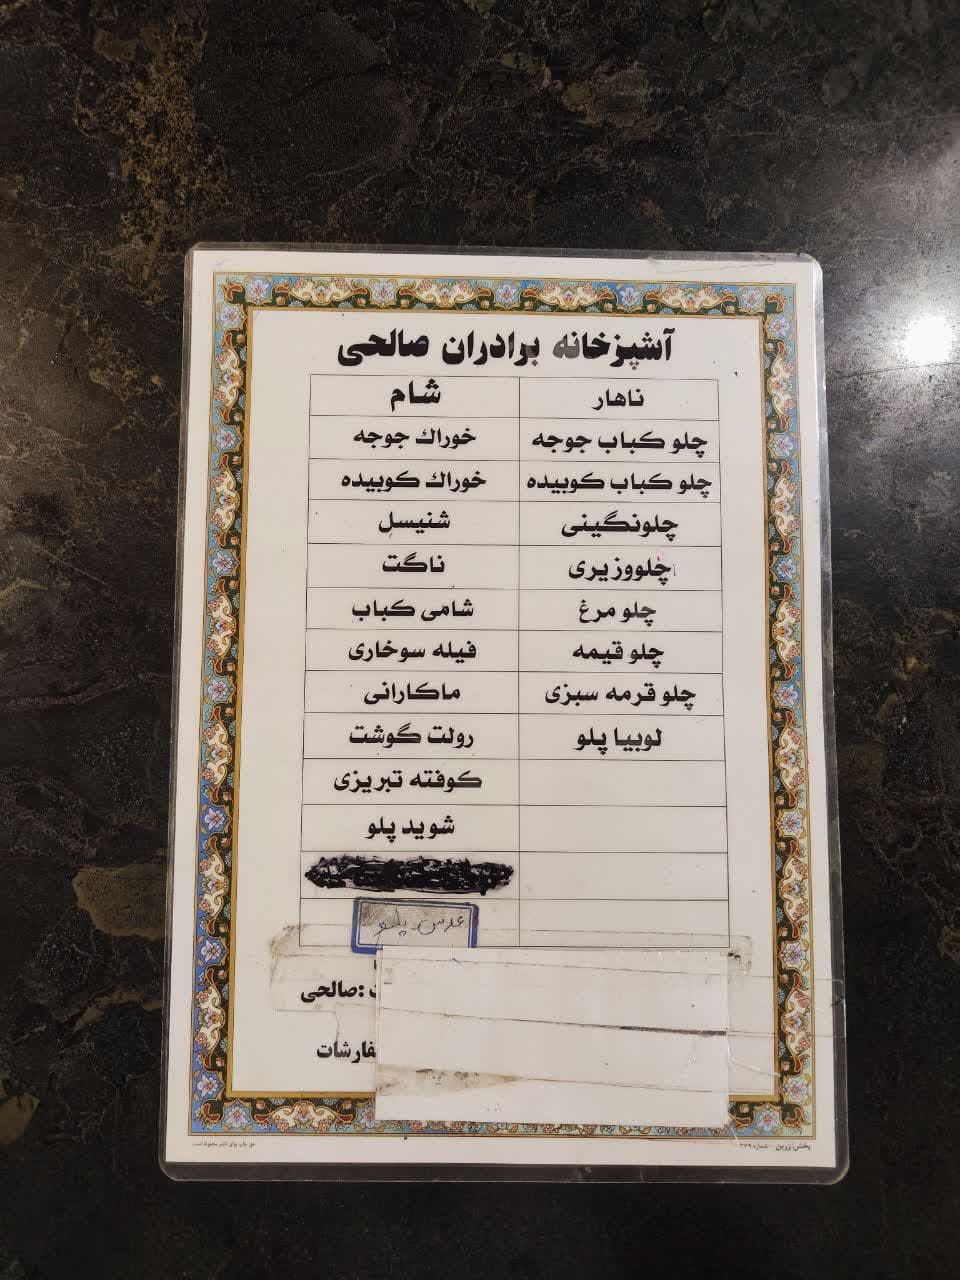 آشپزخانه برادران صالحی
ناهار شام
چلو کباب جوجه خوراک جوجه
چلو کباب کوبیده خوراک کوبیده
چلونگینی شنیسل
چلووزیری ناگت
چلو مرغ شامی کباب
چلو قیمه فیله سوخاری
چلو قرمه سبزی ماکارانی
لوبیا پلو رولت گوشت
کوفته تبریزی
شوید پلو
عدس پلو
:صالحی
فارشات
پخش: زرین شماره ۳۲۹
حق چاپ برای ناشر محفوظ است